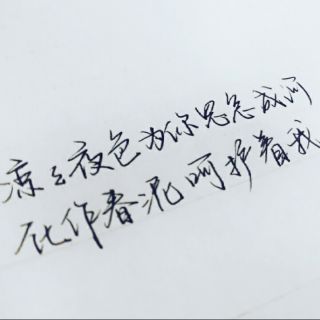 凉凉夜色为你思念成河
化作春泥呵护着我